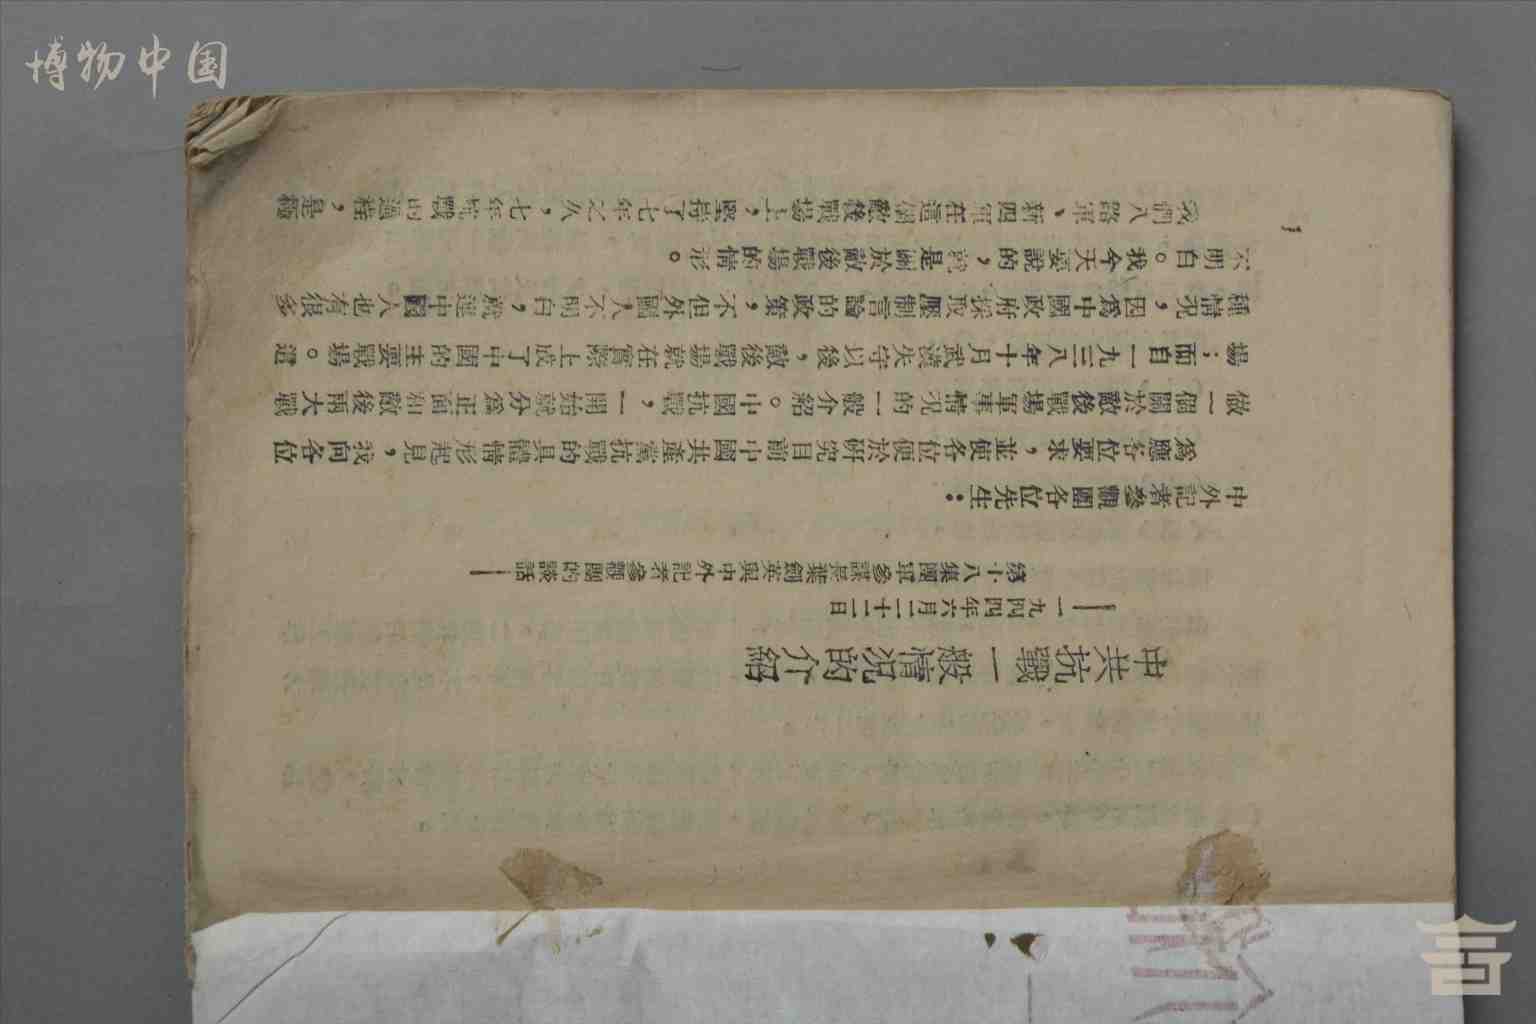 博物中国
中共抗戰一般情況的介紹
——一九四四年六月二十二日
第十八集團軍參謀長葉劍英與中外記者參觀團的談話——
中外記者參觀團各位先生：
爲應各位要求，並使各位便於研究目前中國共產黨抗戰的具體情形起見，我向各位
做一個關於敵後戰場軍事情況的一般介紹。中國抗戰，一開始就分爲正面和敵後兩大戰
場；而自一九三八年十月武漢失守以後，敵後戰場就在實際上成了中國的主要戰場。這
種情況，因爲中國政府採取壓制言論的政策，不但外國人不明白，就連中國人也有很多
不明白。我今天要說的，就是關於敵後戰場的情形。
我們八路軍、新四軍在這個敵後戰場上，堅持了七年之久，七年抗戰的過程，是極
1